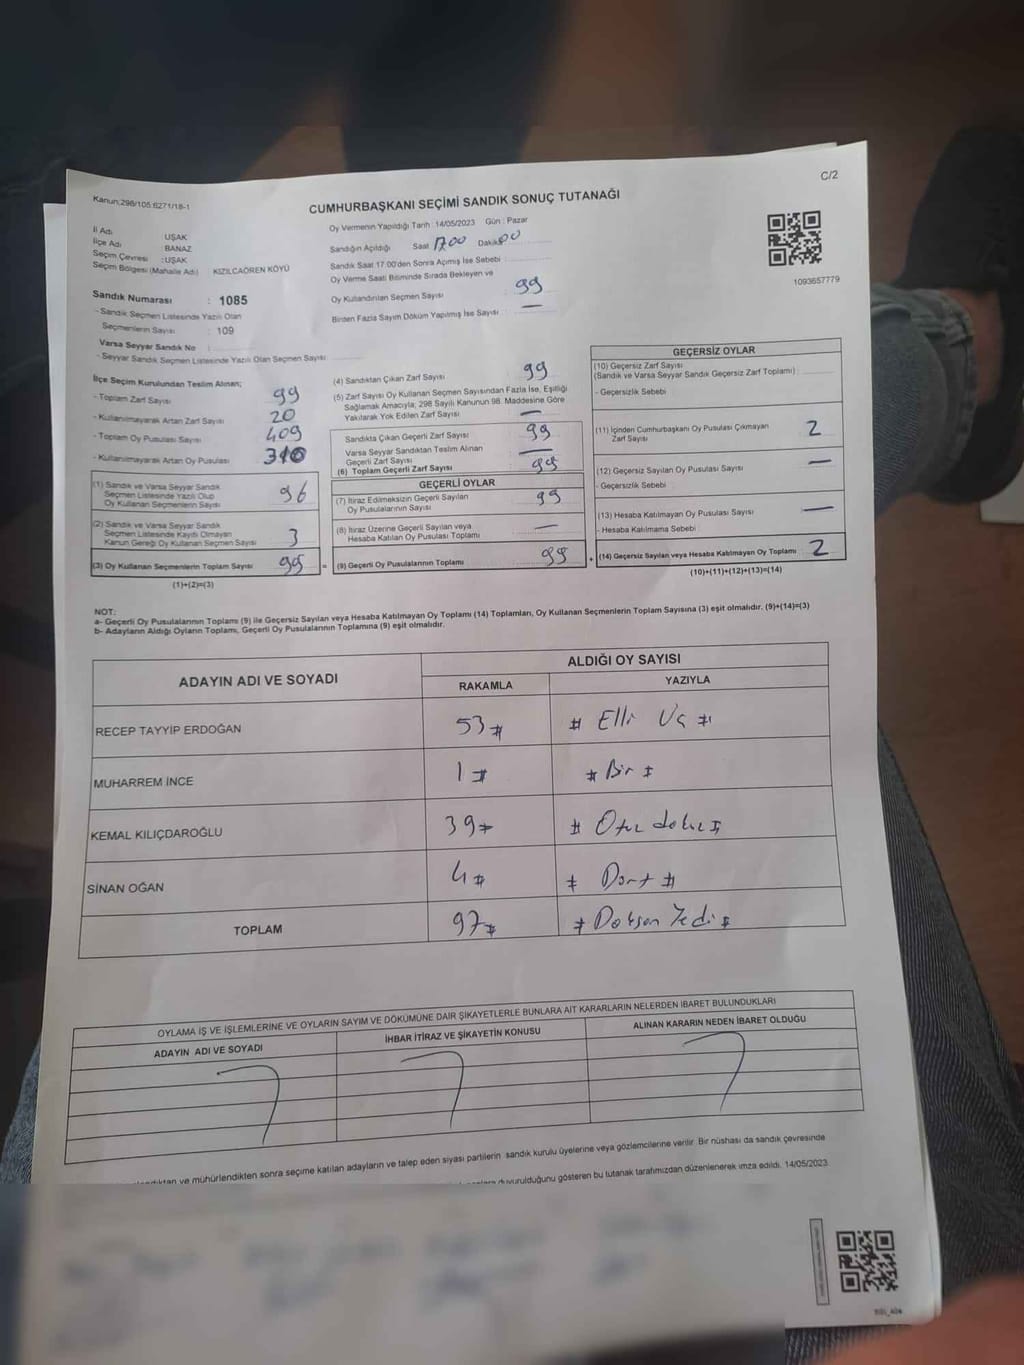 C/2
Kanun:298/105.6271/18-1
CUMHURBAŞKANI SEÇİMİ SANDIK SONUÇ TUTANAĞI
İl Adı UŞAK
İlçe Adı BANAZ
Seçim Çevresi : UŞAK
Seçim Bölgesi (Mahalle Adı) KIZILCAÖREN KÖYÜ
Sandık Numarası : 1085
- Sandık Seçmen Listesinde Yazılı Olan
Seçmenlerin Sayısı : 109
Varsa Seyyar Sandık No :
- Seyyar Sandık Seçmen Listesinde Yazılı Olan Seçmen Sayısı :
Oy Vermenin Yapıldığı Tarih : 14/05/2023 Gün : Pazar
Sandığın Açıldığı Saat 17.00 Dakika 00
Sandık Saat 17.00'den Sonra Açımış İse Sebebi :
Oy Verme Saati Bitiminde Sırada Bekleyen ve
Oy Kullandırılan Seçmen Sayısı 99
Birden Fazla Sayım Döküm Yapılmış İse Sayısı : —
1093657779
İlçe Seçim Kurulundan Teslim Alınan;
- Toplam Zarf Sayısı 99
- Kullanılmayarak Artan Zarf Sayısı 20
- Toplam Oy Pusulası Sayısı 409
- Kullanılmayarak Artan Oy Pusulası 310
(1) Sandık ve Varsa Seyyar Sandık
Seçmen Listesinde Yazılı Olup
Oy Kullanan Seçmenlerin Sayısı 96
(2) Sandık ve Varsa Seyyar Sandık
Seçmen Listesinde Kayıtlı Olmayan
Kanun Gereği Oy Kullanan Seçmen Sayısı 3
(3) Oy Kullanan Seçmenlerin Toplam Sayısı 99 =
(1)+(2)=(3)
(4) Sandıktan Çıkan Zarf Sayısı 99
(5) Zarf Sayısı Oy Kullanan Seçmen Sayısından Fazla İse, Eşitliği
Sağlamak Amacıyla; 298 Sayılı Kanunun 98. Maddesine Göre
Yakılarak Yok Edilen Zarf Sayısı —
Sandıkta Çıkan Geçerli Zarf Sayısı 99
Varsa Seyyar Sandıktan Teslim Alınan
Geçerli Zarf Sayısı —
(6) Toplam Geçerli Zarf Sayısı 99
GEÇERLİ OYLAR
(7) İtiraz Edilmeksizin Geçerli Sayılan
Oy Pusulalarının Sayısı 99
(8) İtiraz Üzerine Geçerli Sayılan veya
Hesaba Katılan Oy Pusulası Toplamı —
(9) Geçerli Oy Pusulalarının Toplamı 99 +
GEÇERSİZ OYLAR
(10) Geçersiz Zarf Sayısı
(Sandık ve Varsa Seyyar Sandık Geçersiz Zarf Toplamı) :
- Geçersizlik Sebebi
(11) İçinden Cumhurbaşkanı Oy Pusulası Çıkmayan
Zarf Sayısı 2
(12) Geçersiz Sayılan Oy Pusulası Sayısı —
- Geçersizlik Sebebi
(13) Hesaba Katılmayan Oy Pusulası Sayısı —
- Hesaba Katılmama Sebebi
(14) Geçersiz Sayılan veya Hesaba Katılmayan Oy Toplamı 2
(10)+(11)+(12)+(13)=(14)
NOT:
a- Geçerli Oy Pusulalarının Toplamı (9) ile Geçersiz Sayılan veya Hesaba Katılmayan Oy Toplamı (14) Toplamları, Oy Kullanan Seçmenlerin Toplam Sayısına (3) eşit olmalıdır. (9)+(14)=(3)
b- Adayların Aldığı Oyların Toplamı, Geçerli Oy Pusulalarının Toplamına (9) eşit olmalıdır.
ADAYIN ADI VE SOYADI ALDIĞI OY SAYISI
RAKAMLA YAZIYLA
RECEP TAYYİP ERDOĞAN 53# # Elli Üç #
MUHARREM İNCE 1# # Bir #
KEMAL KILIÇDAROĞLU 39# # Otuz dokuz #
SİNAN OĞAN 4# # Dört #
TOPLAM 97# # Doksan Yedi #
OYLAMA İŞ VE İŞLEMLERİNE VE OYLARIN SAYIM VE DÖKÜMÜNE DAİR ŞİKAYETLERLE BUNLARA AİT KARARLARIN NELERDEN İBARET BULUNDUKLARI
ADAYIN ADI VE SOYADI İHBAR İTİRAZ VE ŞİKAYETİN KONUSU ALINAN KARARIN NEDEN İBARET OLDUĞU
ve mühürlendikten sonra seçime katılan adayların ve talep eden siyasi partilerin sandık kurulu üyelerine veya gözlemcilerine verilir. Bir nüshası da sandık çevresinde
duyurulduğunu gösteren bu tutanak tarafımızdan düzenlenerek imza edildi. 14/05/2023